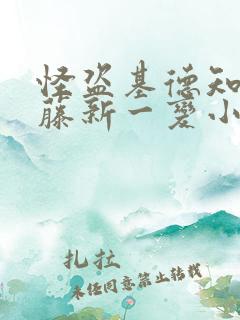 怪盗基德知
藤新一变小
扎拉
未经同意禁止转载